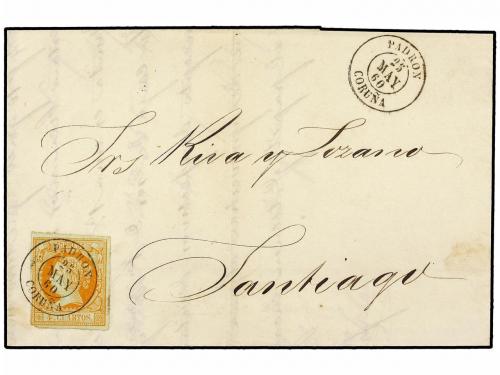 PADRON
23
MAY
60
CORUÑA
Srs Riva y Lozano
Santiago
PADRON
23
MAY
60
CORUÑA
CUARTOS.